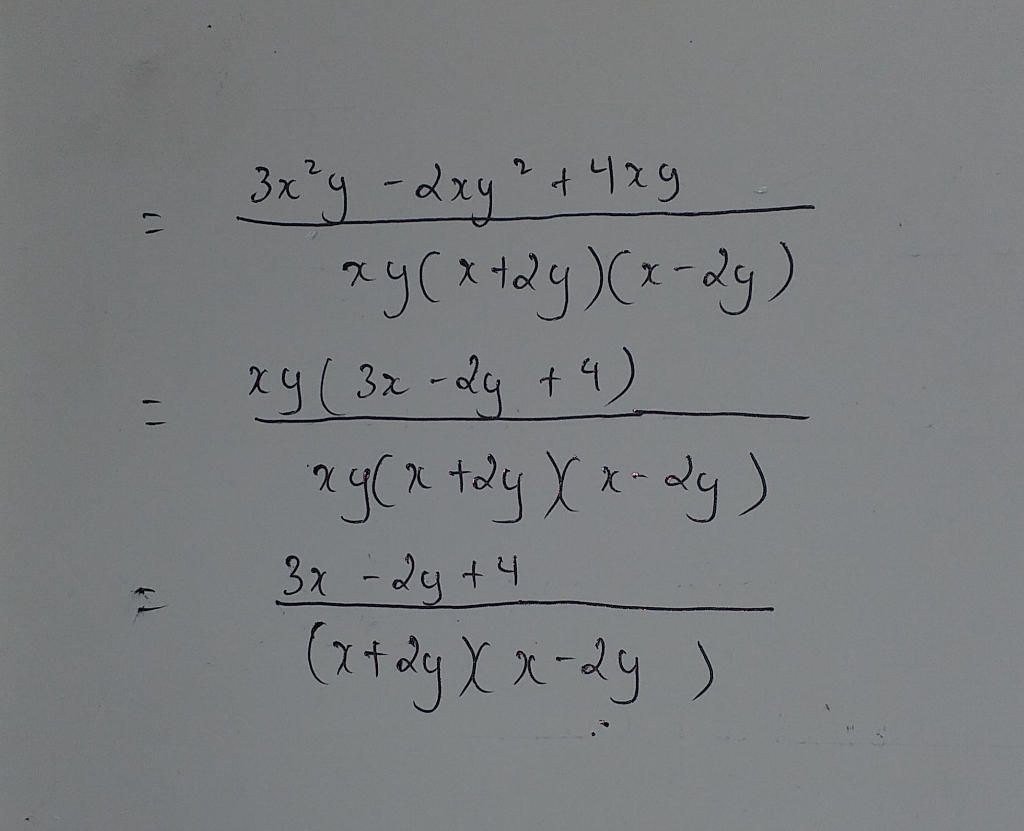 = 3x²y - 2xy² + 4xy
xy(x+2y)(x-2y)
= xy(3x - 2y + 4)
xy(x+2y)(x-2y)
= 3x - 2y + 4
(x+2y)(x-2y)